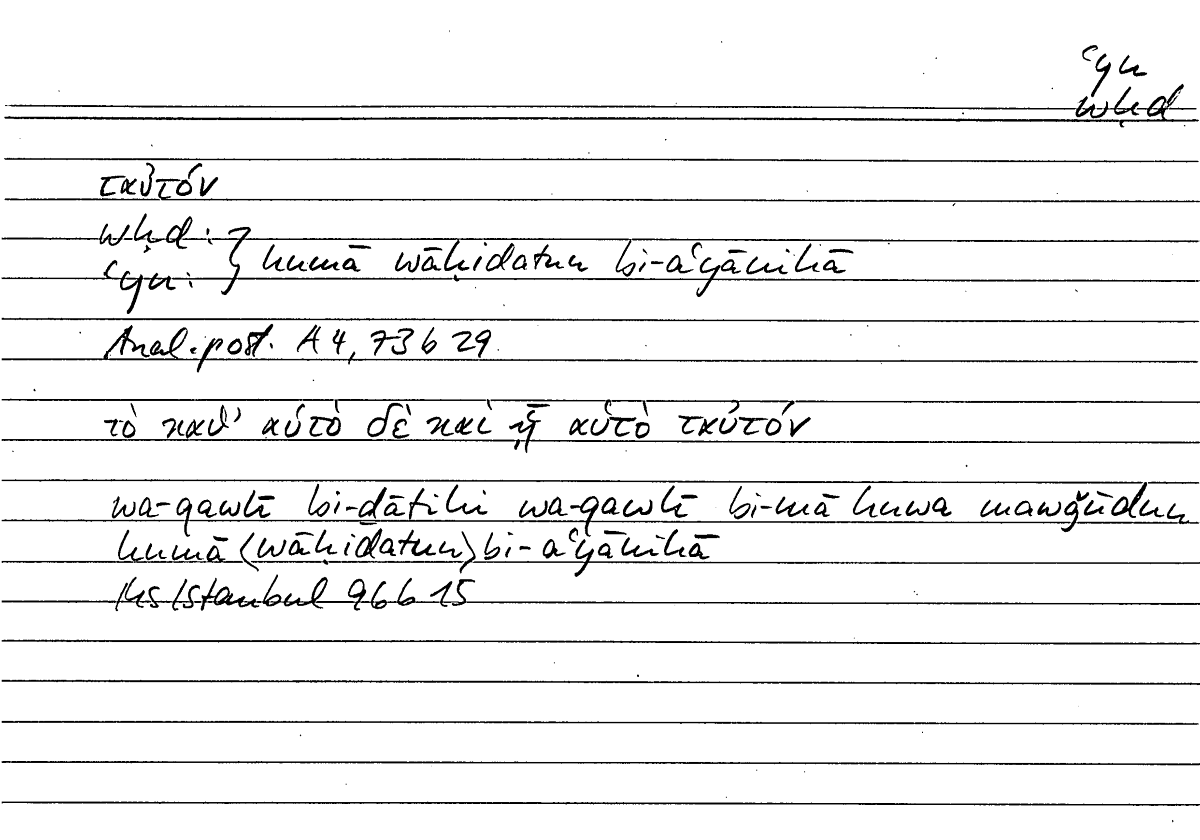 ʿyn
wḥd
ταὐτόν
wḥd: }
ʿyn: } humā wāḥidatun bi-aʿyānihā
Anal. post. A 4, 73 b 29
τὸ καθ’ αὑτὸ δὲ καὶ ᾗ αὐτὸ ταὐτόν
wa-qawlī bi-ḏātihi wa-qawlī bi-mā huwa mawǧūdun
humā (wāḥidatun) bi-aʿyānihā
Hs Istanbul 96 b 15